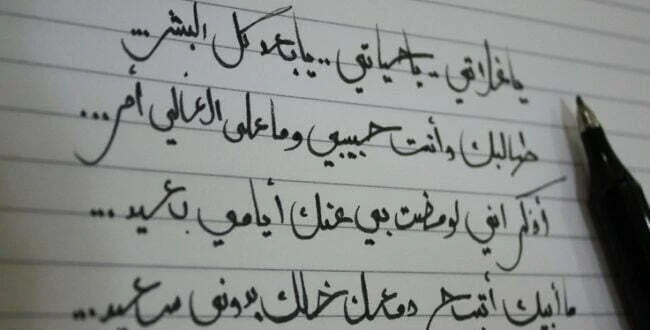 يا غلاتي .. يا حياتي .. يا بعد كل البشر ...
طالبك وأنت حبيبي وما على الغالي أمر ...
أذكر اني لو مضت بي عنك أيامي بعيد ...
ما أبيك أتسح دمعك خلك بدوني سعيد ...